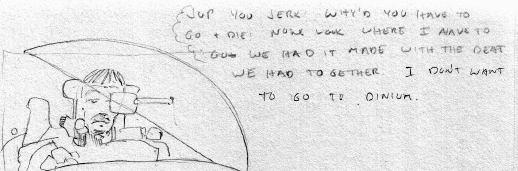 JUP YOU JERK! WHY'D YOU HAVE TO
GO + DIE! NOW LOOK WHERE I HAVE TO
GO WE HAD IT MADE WITH THE DEAL
WE HAD TOGETHER. I DON'T WANT
TO GO TO DINIUM.